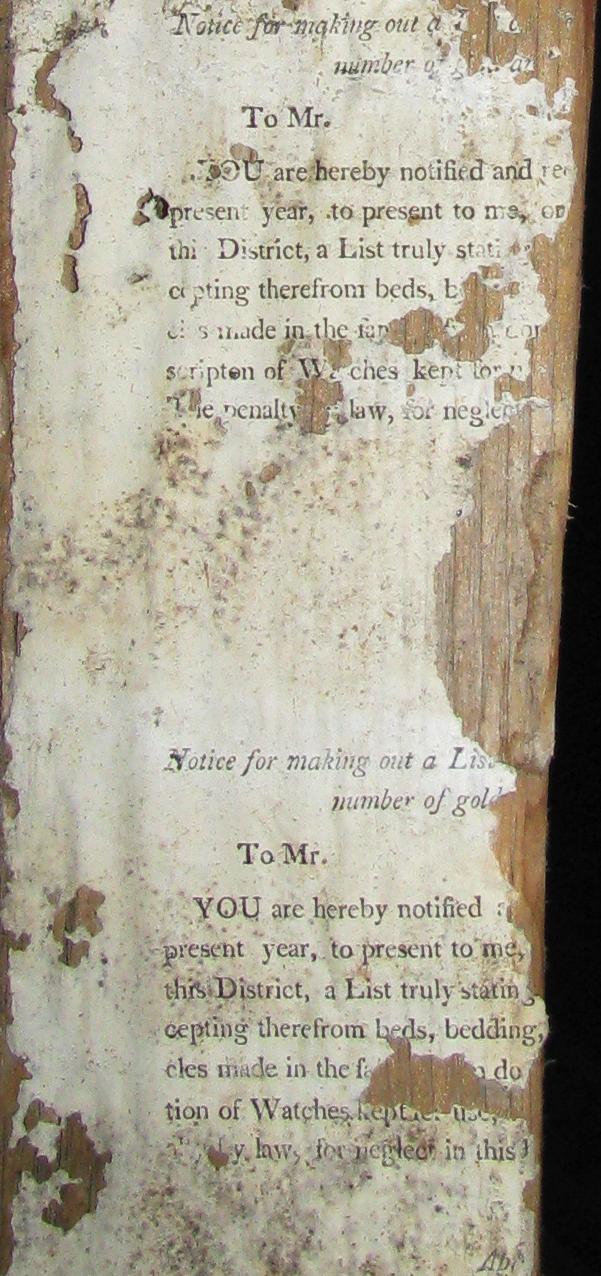 Notice for making out a
number of
To Mr.
YOU are hereby notified and
present year, to present to me, on
District, a List truly
cepting therefrom beds,
made in the
scripton of Watches kept for
penalty law, for neglect
Notice for making out a List
number of gold
To Mr.
YOU are hereby notified
present year, to present to me,
this District, a List truly stating
cepting therefrom beds, bedding,
cles made in the do
tion of Watches kept for use,
by law, for neglect in this